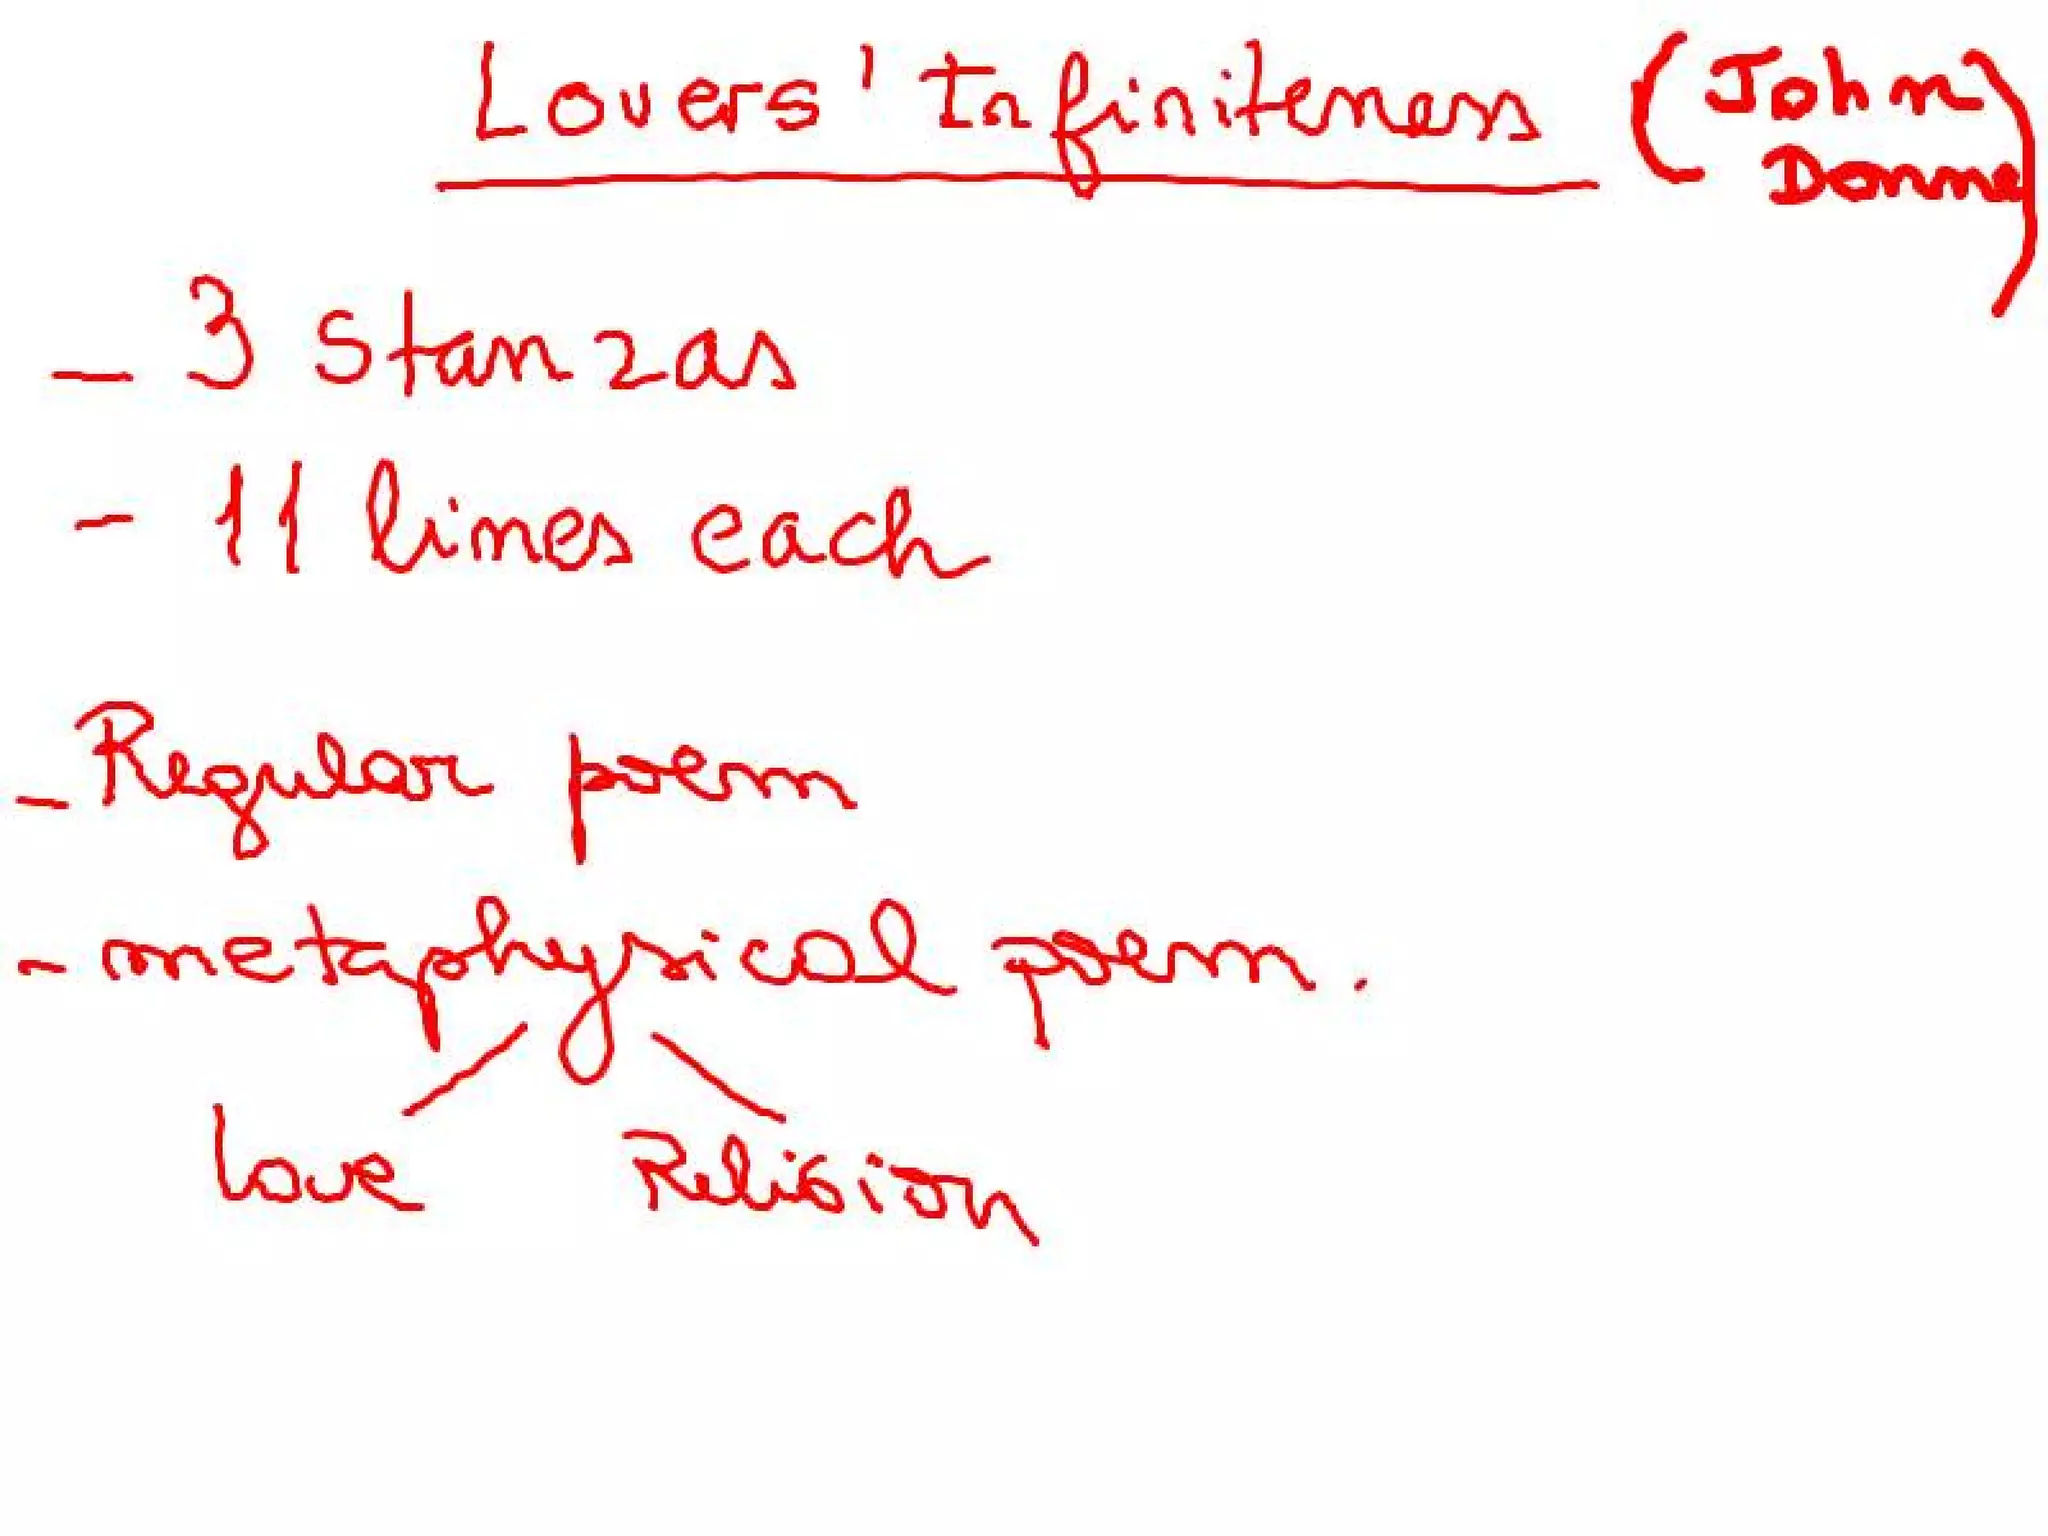 Lovers' Infiniteness (John
Donne)
- 3 Stanzas
- 11 lines each
- Regular poem
- metaphysical poem.
Love Religion